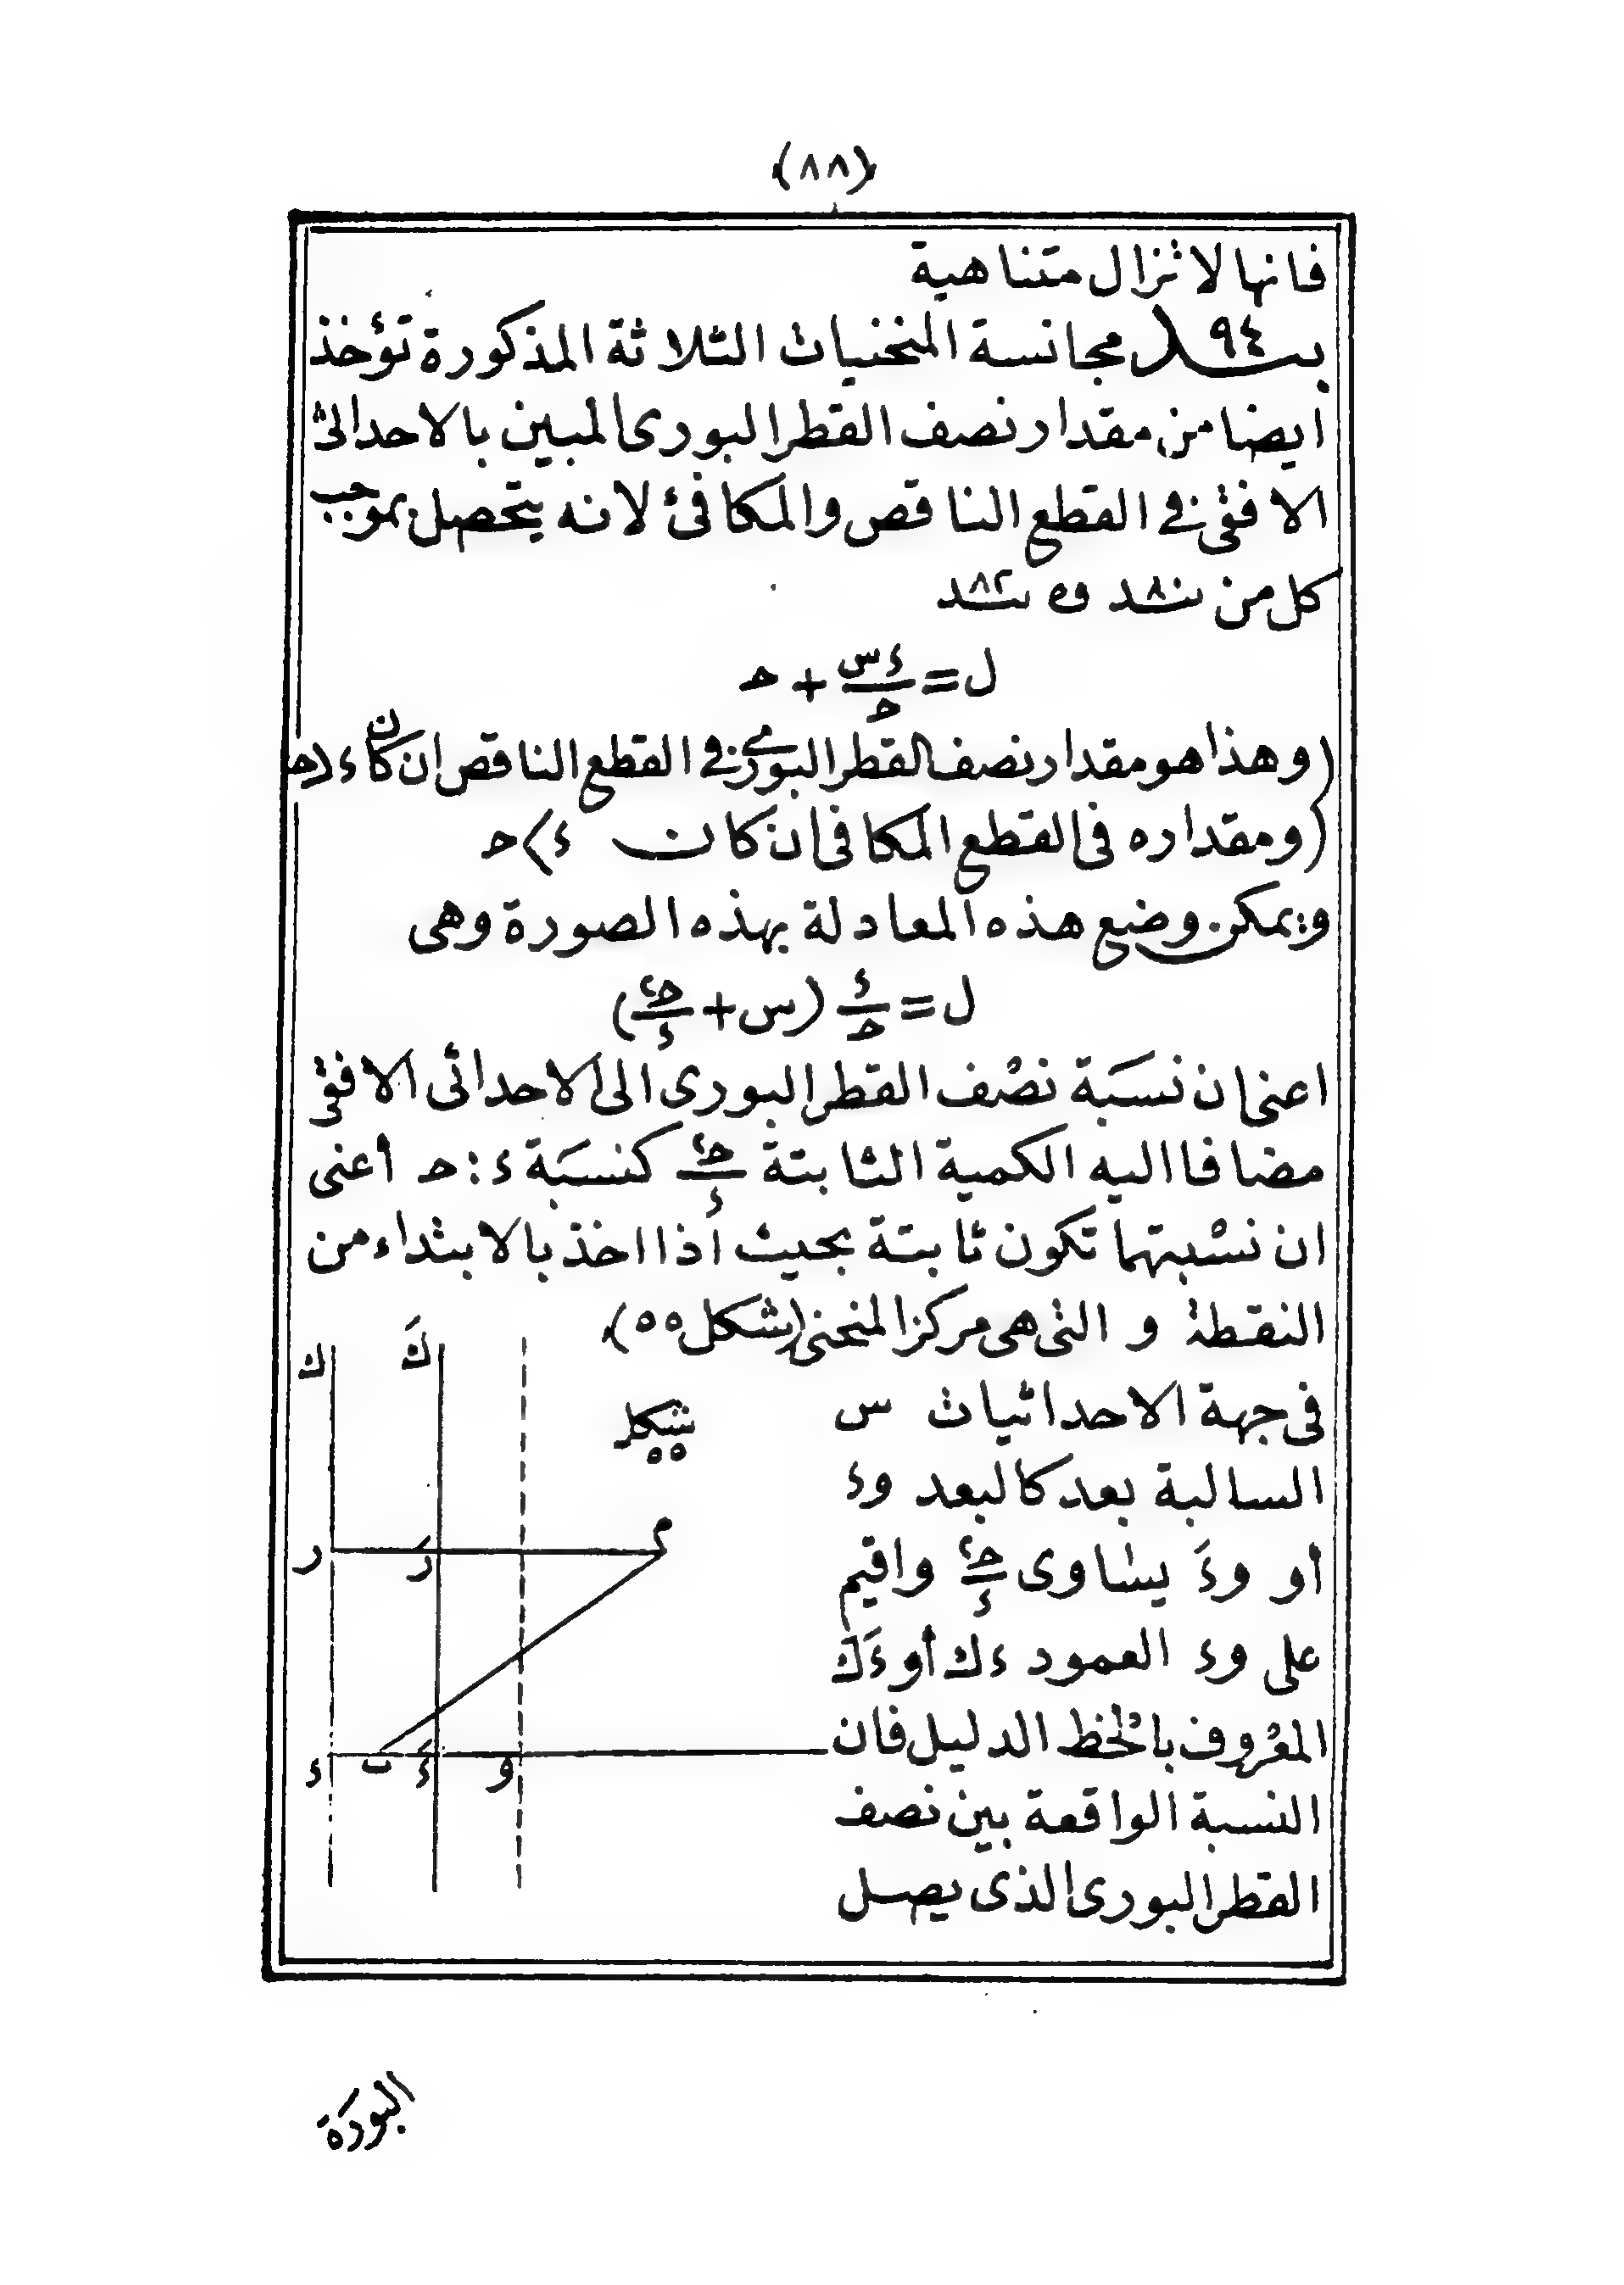 (٨٨)
فانها لا تزال متناهية
بند ٩٤ مجانسة المنحنيات الثلاثة المذكورة تؤخذ
ايضا من مقدار نصف القطر البورى المبين بالاحداثى
الافقى فى القطع الناقص والمكافئ لانه يتحصل بموجب
كل من بند ٨٠ وه بند ٨٢
ل = ءس/حـ + حـ
(وهذا هو مقدار نصف القطر البورى فى القطع الناقص ان كان ء⟨حـ
(ومقداره فى القطع المكافى ان كان ء⟩حـ
ويمكن وضع هذه المعادلة بهذه الصورة وهى
ل = ء/حـ (س + حـ٢/ء)
اعنى ان نسبة نصف القطر البورى الى الاحداثى الافقى
مضافا اليه الكمية الثابتة حـ٢/ء كنسبة ء : حـ أعنى
ان نسبتهما تكون ثابتة بحيث أذا اخذ بالابتداء من
النقطة و التى هى مركز المنحنى (شكل ٥٥)
فى جهة الاحداثيات س
السالبة بعد كالبعد وء
أو وءَ يساوى حـ٢/ء واقيم
على وء العمود ءك أو ءَكَ
المعروف بالخط الدليل فان
النسبة الواقعة بين نصف
القطر البورى الذى يصل
شكل
٥٥
ك
كَ
م
ر
رَ
ء
ب
ءَ
و
البورة